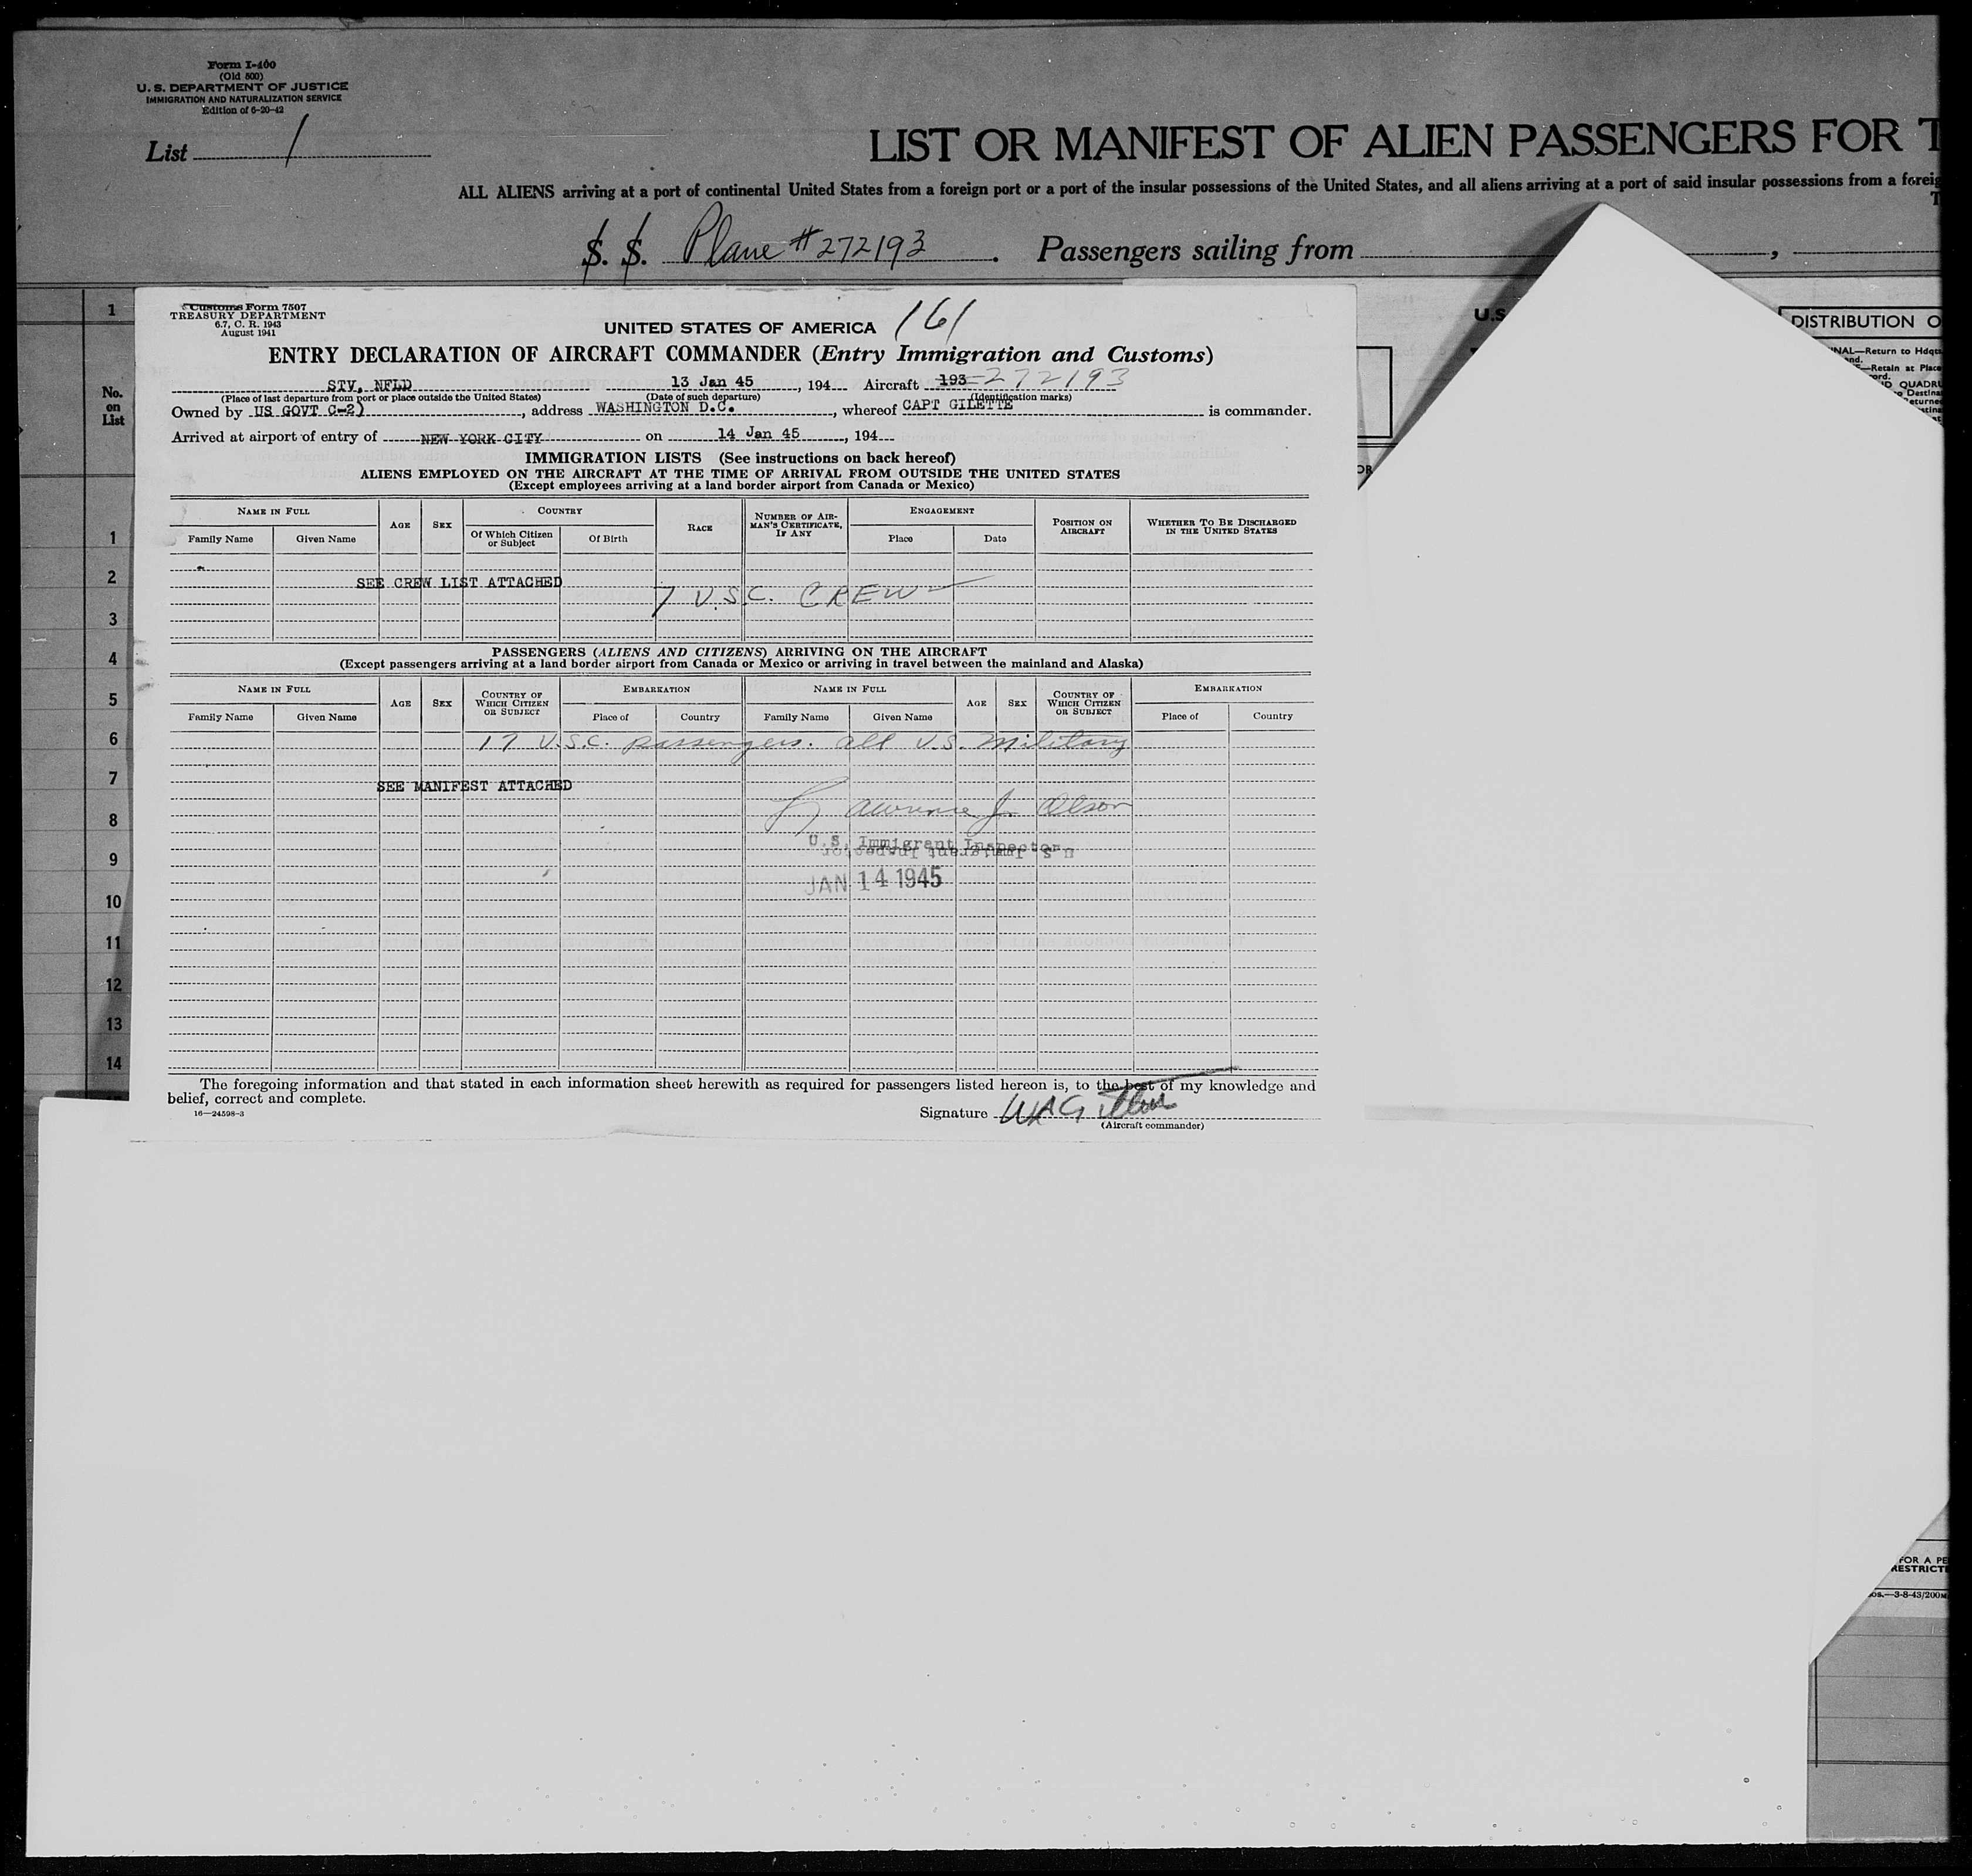 Form I-400
(Old 500)
U. S. DEPARTMENT OF JUSTICE
IMMIGRATION AND NATURALIZATION SERVICE
Edition of 6-20-42
List 1
LIST OR MANIFEST OF ALIEN PASSENGERS FOR T
ALL ALIENS arriving at a port of continental United States from a foreign port or a port of the insular possessions of the United States, and all aliens arriving at a port of said insular possessions from a foreig
S. S. Plane #272193. Passengers sailing from ,
U.S
DISTRIBUTION O
NAL—Return to Hdqts
—Retain at Place
Customs Form 7507
TREASURY DEPARTMENT
6.7, C. R. 1943
August 1941
UNITED STATES OF AMERICA 161
ENTRY DECLARATION OF AIRCRAFT COMMANDER (Entry Immigration and Customs)
STV, NFLD 13 Jan 45, 194 Aircraft 193 272193
(Place of last departure from port or place outside the United States) (Date of such departure) (Identification marks)
Owned by US GOVT C-2), address WASHINGTON D.C., whereof CAPT GILETTE is commander.
Arrived at airport of entry of NEW YORK CITY on 14 Jan 45, 194
IMMIGRATION LISTS (See instructions on back hereof)
ALIENS EMPLOYED ON THE AIRCRAFT AT THE TIME OF ARRIVAL FROM OUTSIDE THE UNITED STATES
(Except employees arriving at a land border airport from Canada or Mexico)
NAME IN FULL AGE SEX COUNTRY RACE NUMBER OF AIRMAN'S CERTIFICATE, IF ANY ENGAGEMENT POSITION ON AIRCRAFT WHETHER TO BE DISCHARGED IN THE UNITED STATES
Family Name Given Name Of Which Citizen or Subject Of Birth Place Date
SEE CREW LIST ATTACHED
7 U.S.C. CREW
PASSENGERS (ALIENS AND CITIZENS) ARRIVING ON THE AIRCRAFT
(Except passengers arriving at a land border airport from Canada or Mexico or arriving in travel between the mainland and Alaska)
NAME IN FULL AGE SEX COUNTRY OF WHICH CITIZEN OR SUBJECT EMBARKATION NAME IN FULL AGE SEX COUNTRY OF WHICH CITIZEN OR SUBJECT EMBARKATION
Family Name Given Name Place of Country Family Name Given Name Place of Country
17 U.S.C. passengers. all U.S. Military
SEE MANIFEST ATTACHED
Lawrence J. Olson
U.S. Immigrant Inspector
JAN 14 1945
The foregoing information and that stated in each information sheet herewith as required for passengers listed hereon is, to the best of my knowledge and
belief, correct and complete.
16—24598-3
Signature
(Aircraft commander)
No.
on
List
1
1
2
3
4
5
6
7
8
9
10
11
12
13
14
FOR A PE
RESTRICT
3-8-43/200M